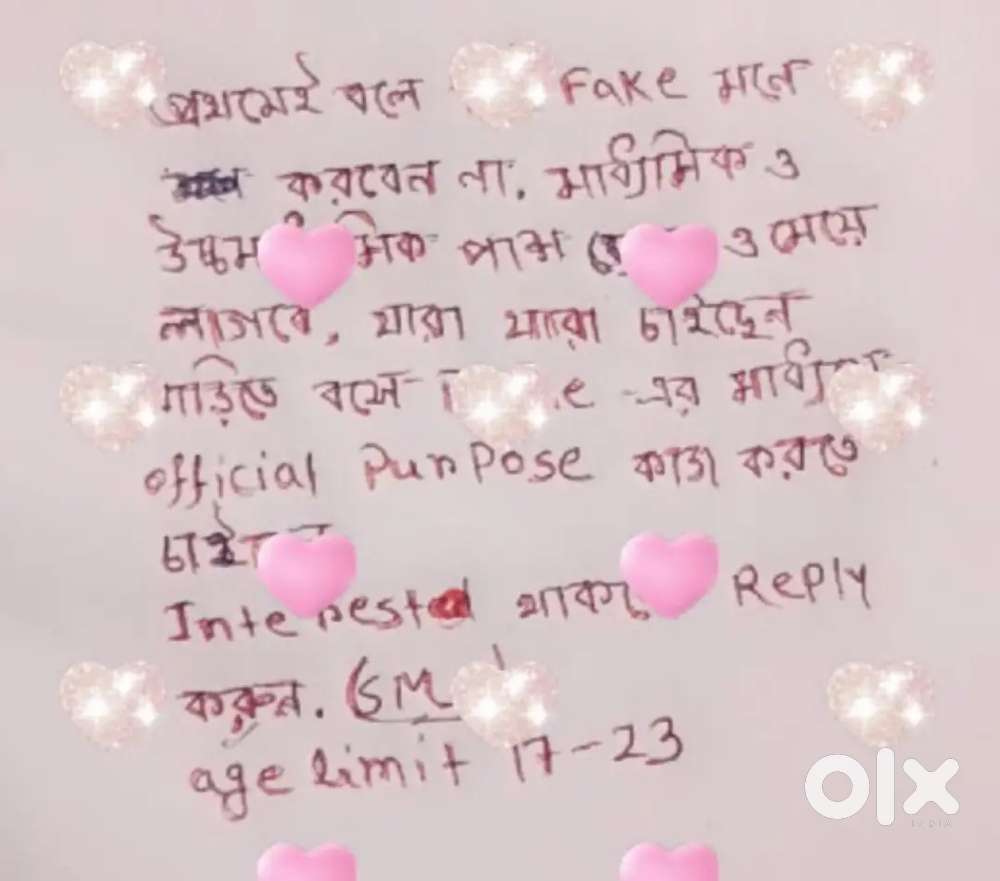 প্রথমেই বলে Fake মনে
করবেন না. মাধ্যমিক ও
পাশ ও মেয়ে
লাগবে, যারা যারা চাইছেন
বসে -এর
official Purpose কাজ করতে
Interested Reply
করুন. (SM
age limit 17-23
olx
INDIA